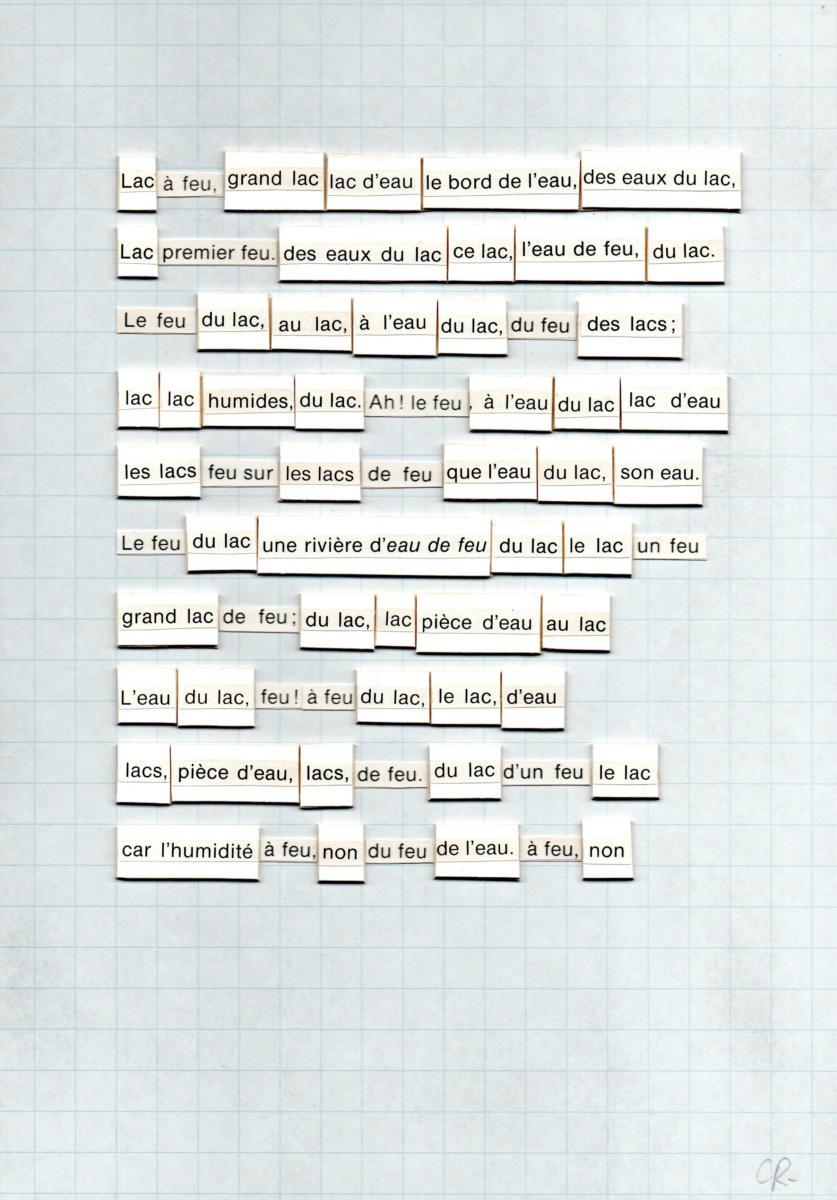 Lac à feu, grand lac lac d'eau le bord de l'eau, des eaux du lac,
Lac premier feu. des eaux du lac ce lac, l'eau de feu, du lac.
Le feu du lac, au lac, à l'eau du lac, du feu des lacs ;
lac lac humides, du lac. Ah ! le feu , à l'eau du lac lac d'eau
les lacs feu sur les lacs de feu que l'eau du lac, son eau.
Le feu du lac une rivière d'eau de feu du lac le lac un feu
grand lac de feu ; du lac, lac pièce d'eau au lac
L'eau du lac, feu ! à feu du lac, le lac, d'eau
lacs, pièce d'eau, lacs, de feu. du lac d'un feu le lac
car l'humidité à feu, non du feu de l'eau. à feu, non
CR-